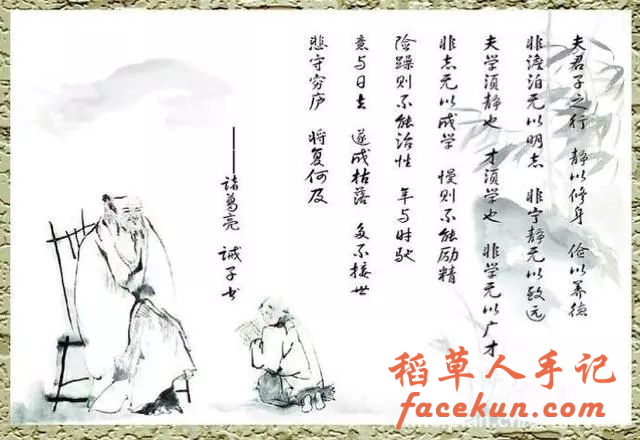 夫君子之行 静以修身 俭以养德
非澹泊无以明志 非宁静无以致远
夫学须静也 才须学也 非学无以广才
非志无以成学 慢则不能励精
险躁则不能治性 年与时驰
意与日去 遂成枯落 多不接世
悲守穷庐 将复何及
——诸葛亮 诫子书
稻草人手记
facekun.com